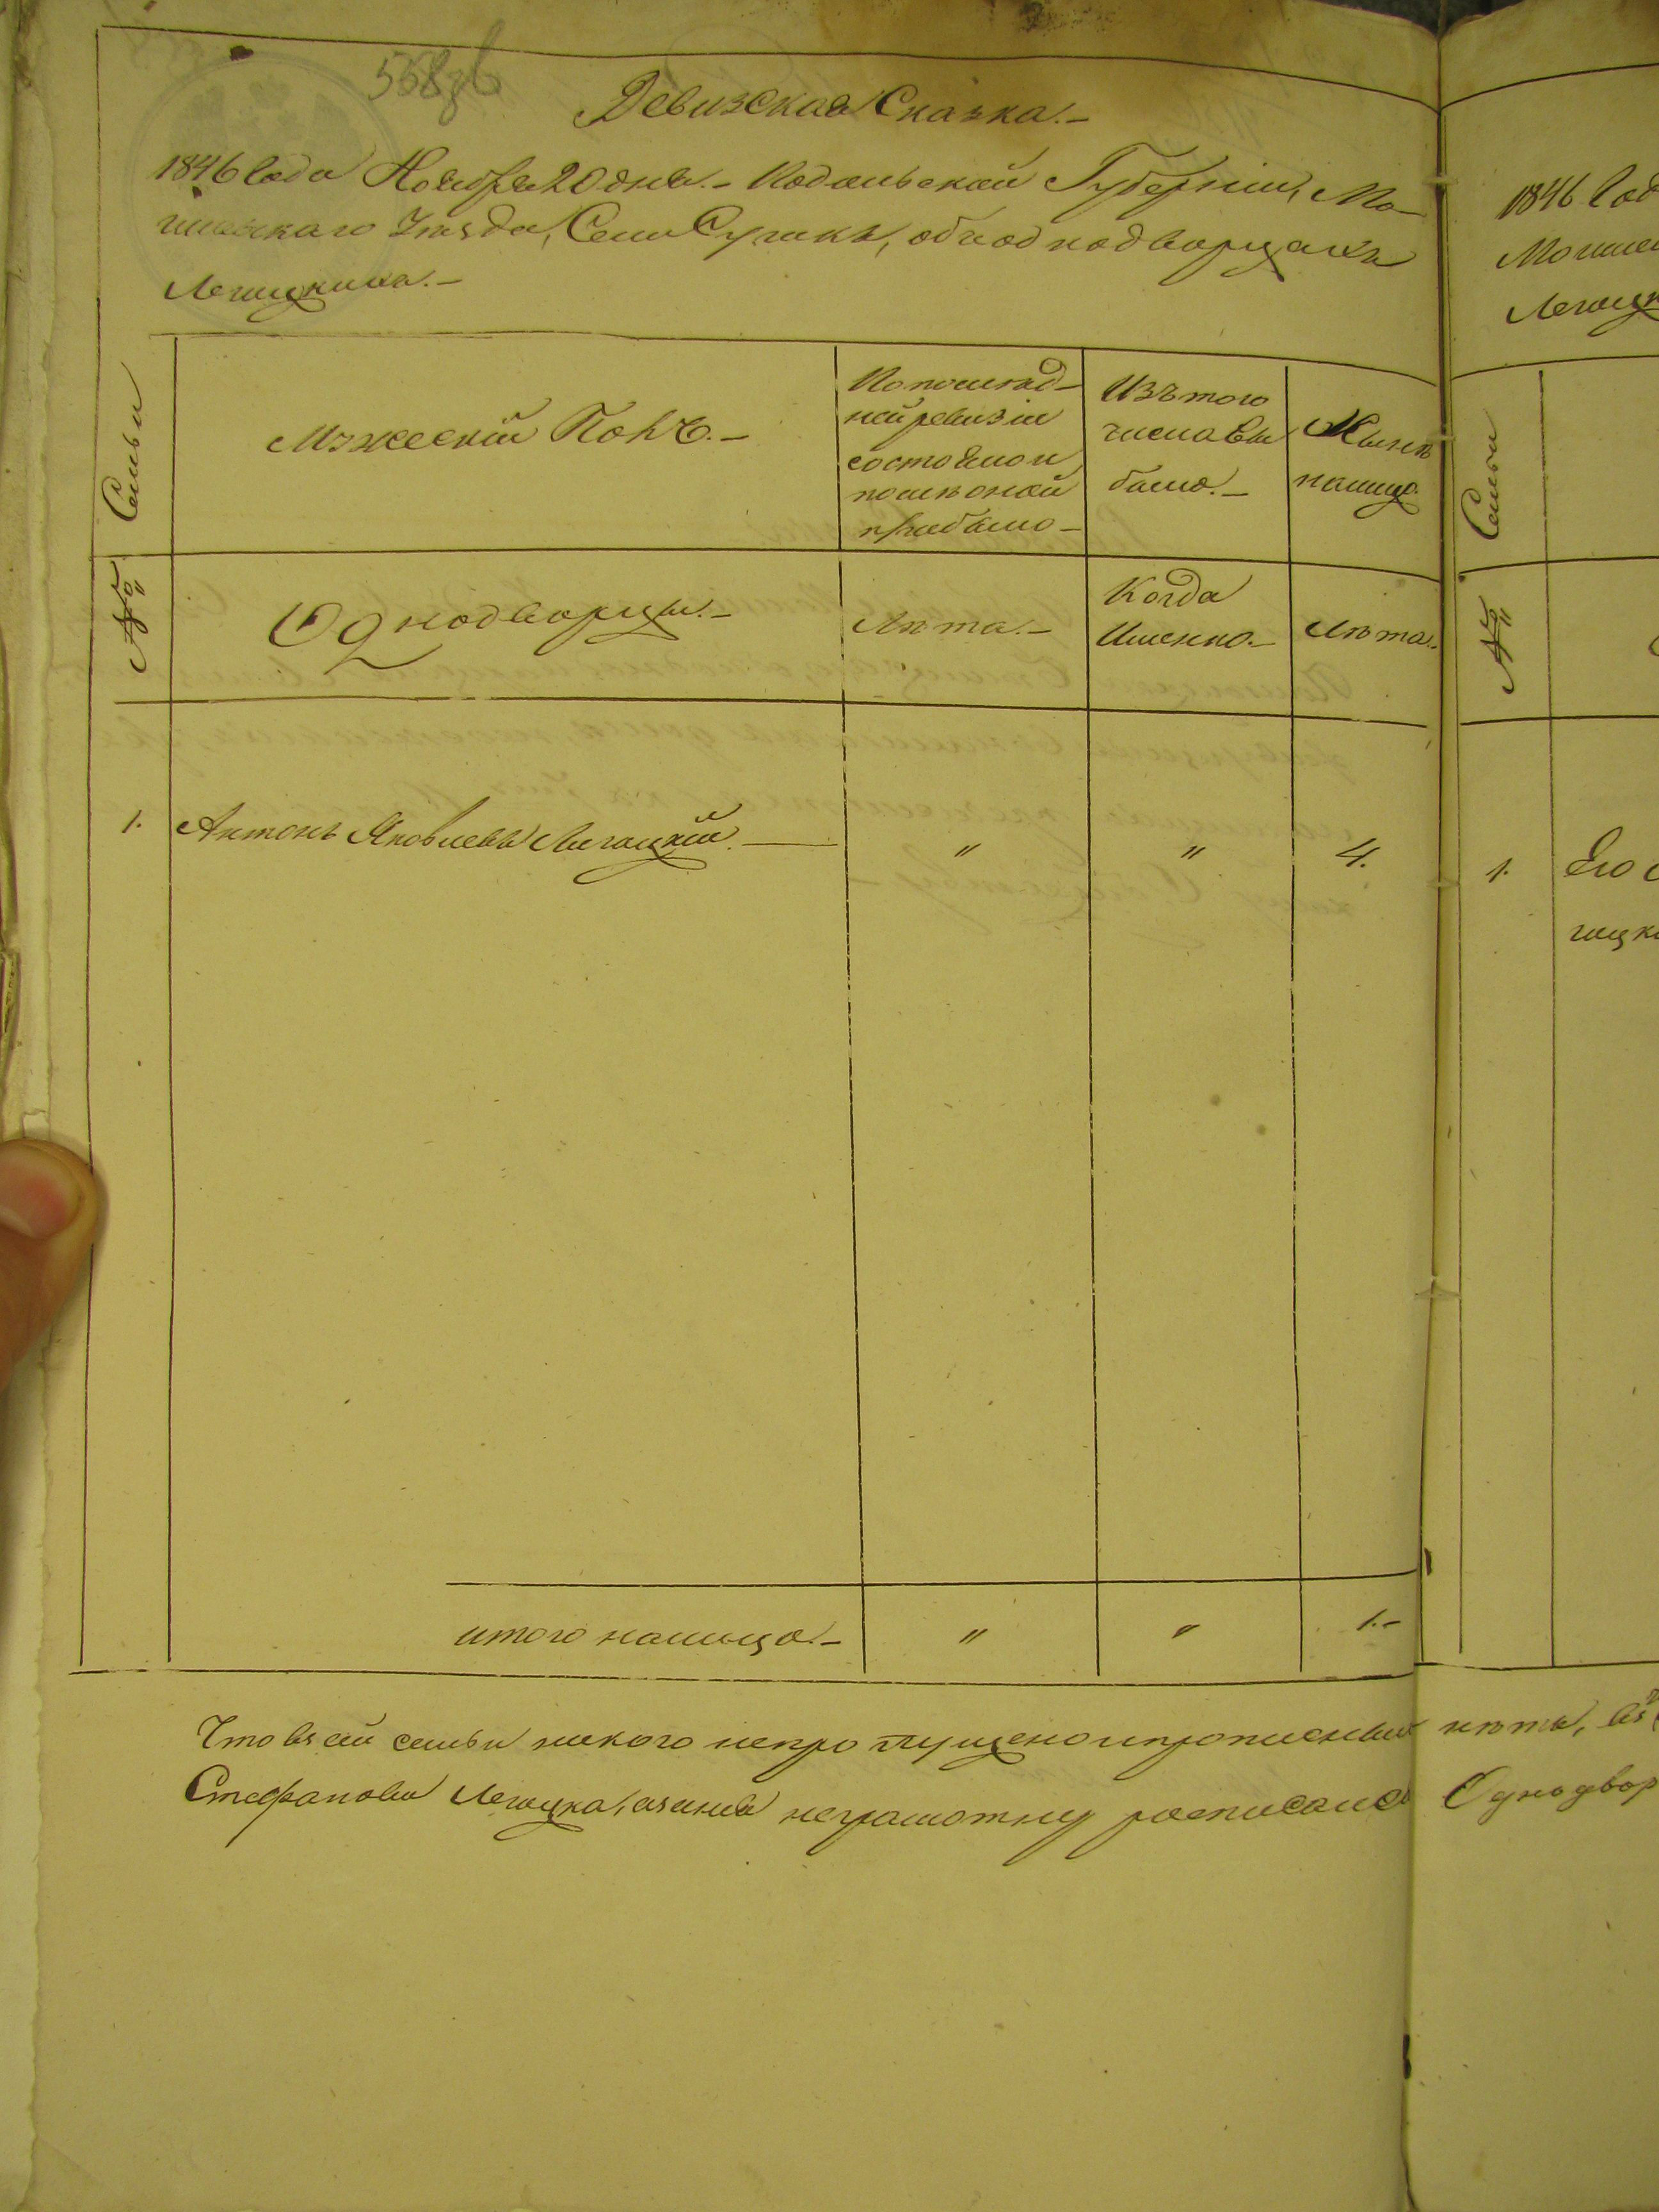 Ревизская Сказка.-
1846 Года Ноября 20 дня.- Подольской Губерніи, Мо-
гилевскаго Уѣзда, объ однодворцахъ
Легацкихъ.-
Семьи
Мужескій Полъ.-
По послѣд-
ней ревизіи
состояло и
послѣ оной
прибыло-
Изъ того
числа вы
было.-
Нынѣ
налицо.
№
Однодворцы.-
Лѣта.-
Когда
Именно.-
Лѣта.
1. Антонъ Яковлевъ Легацкій. " " 4.
итого налицо.- " " 1.-
Что въ сей семьи никого не пропущено и прописныхъ нѣтъ, въ
Стефанова Легацка, а за нея неграмотну росписался Однодвор
1846 Год
Могилев
Легацк
Семьи
№
1. Его
гацк